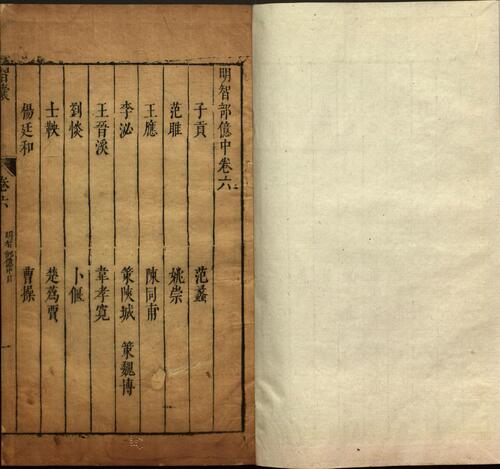 明智部億中卷六
子貢 范蠡
范雎 姚崇
王應 陳同甫
李泌 策陝城 策魏博
王晉溪 韋孝寬
劉惔 卜偃
士鞅 楚蔿賈
楊廷和 曹操
智囊 卷六 明智部億中目 一